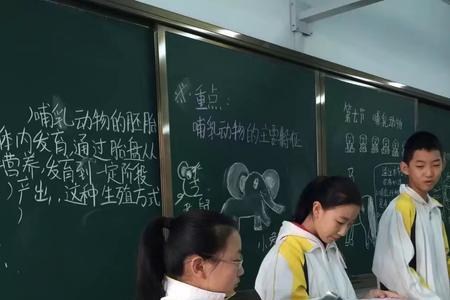 )哺乳动物的胚胎
体内发育,通过胎盘从
营养,发育到一定阶段
)产出,这种生殖方式
)
※重点:
哺乳动物的主要特征
小老鼠
小
第七节 哺乳动物